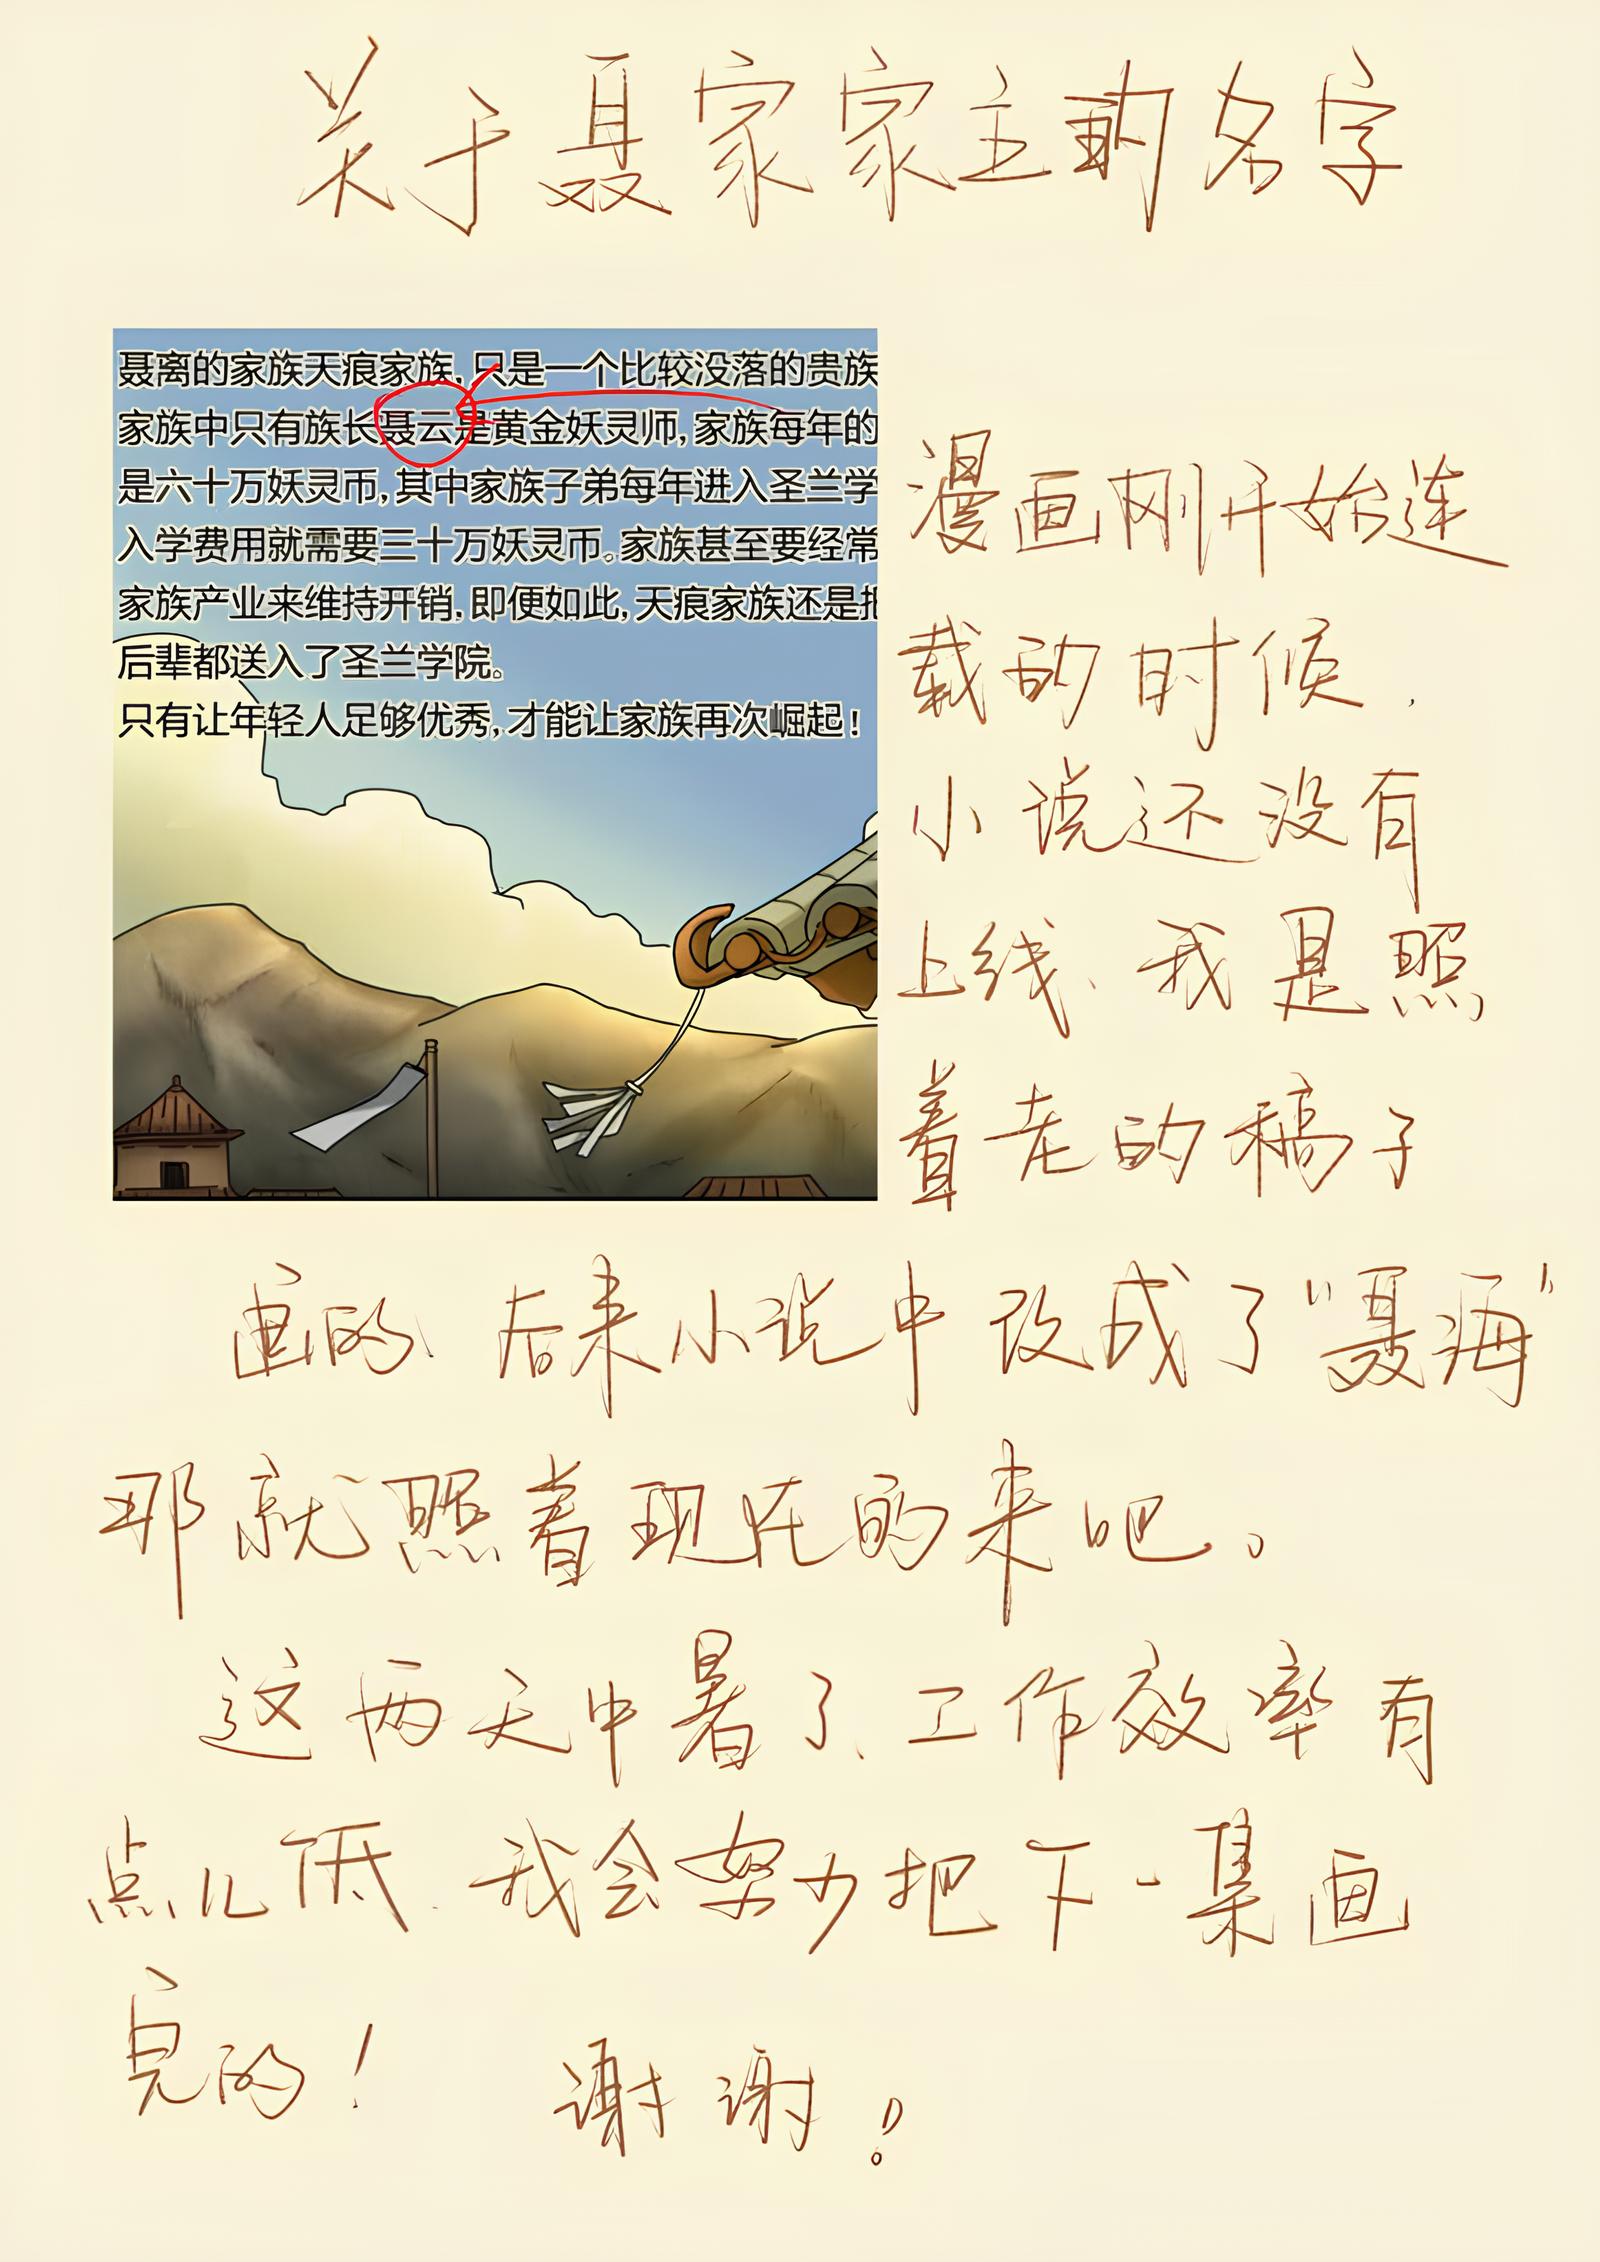 关于聂家家主的名字
聂离的家族天痕家族，只是一个比较没落的贵族
家族中只有族长聂云是黄金妖灵师，家族每年的
是六十万妖灵币，其中家族子弟每年进入圣兰学
入学费用就需要三十万妖灵币。家族甚至要经常
家族产业来维持开销，即便如此，天痕家族还是把
后辈都送入了圣兰学院。
只有让年轻人足够优秀，才能让家族再次崛起！
漫画刚开始连
载的时候，
小说还没有
上线、我是照
着老的稿子
画的、后来小说中改成了“聂海”
那就照着现在的来吧。
这两天中暑了、工作效率有
点儿低、我会努力把下一集画
完的！ 谢谢！